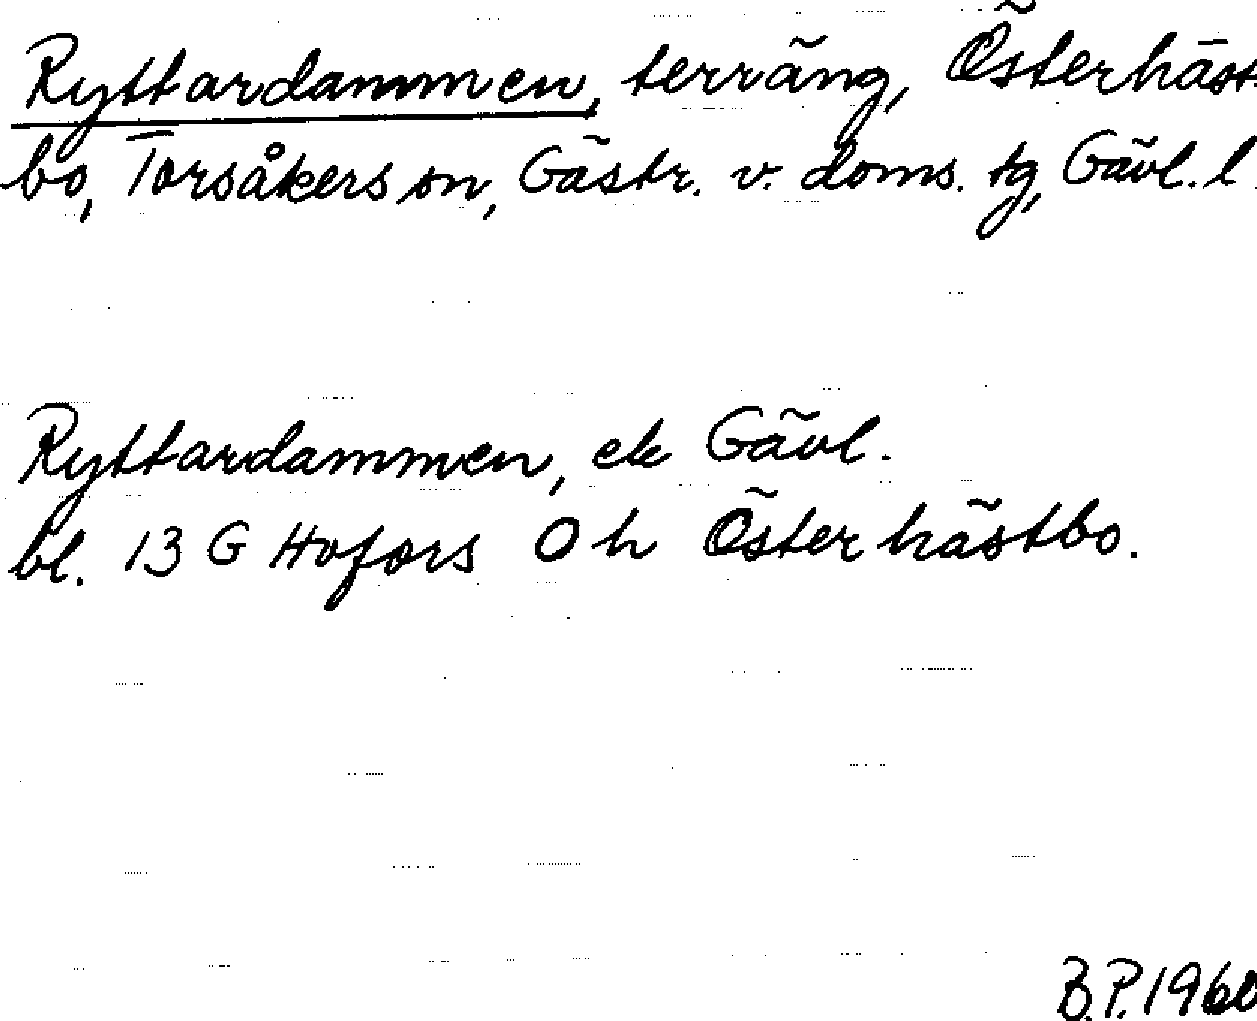 Ryttardammen, terräng, Österhäst-
bo, Torsåkers sn, Gästr. v. doms. tg, Gävl. l.
Ryttardammen, ek Gävl.
bl. 13 G Hofors O h Österhästbo.
B.P. 1960